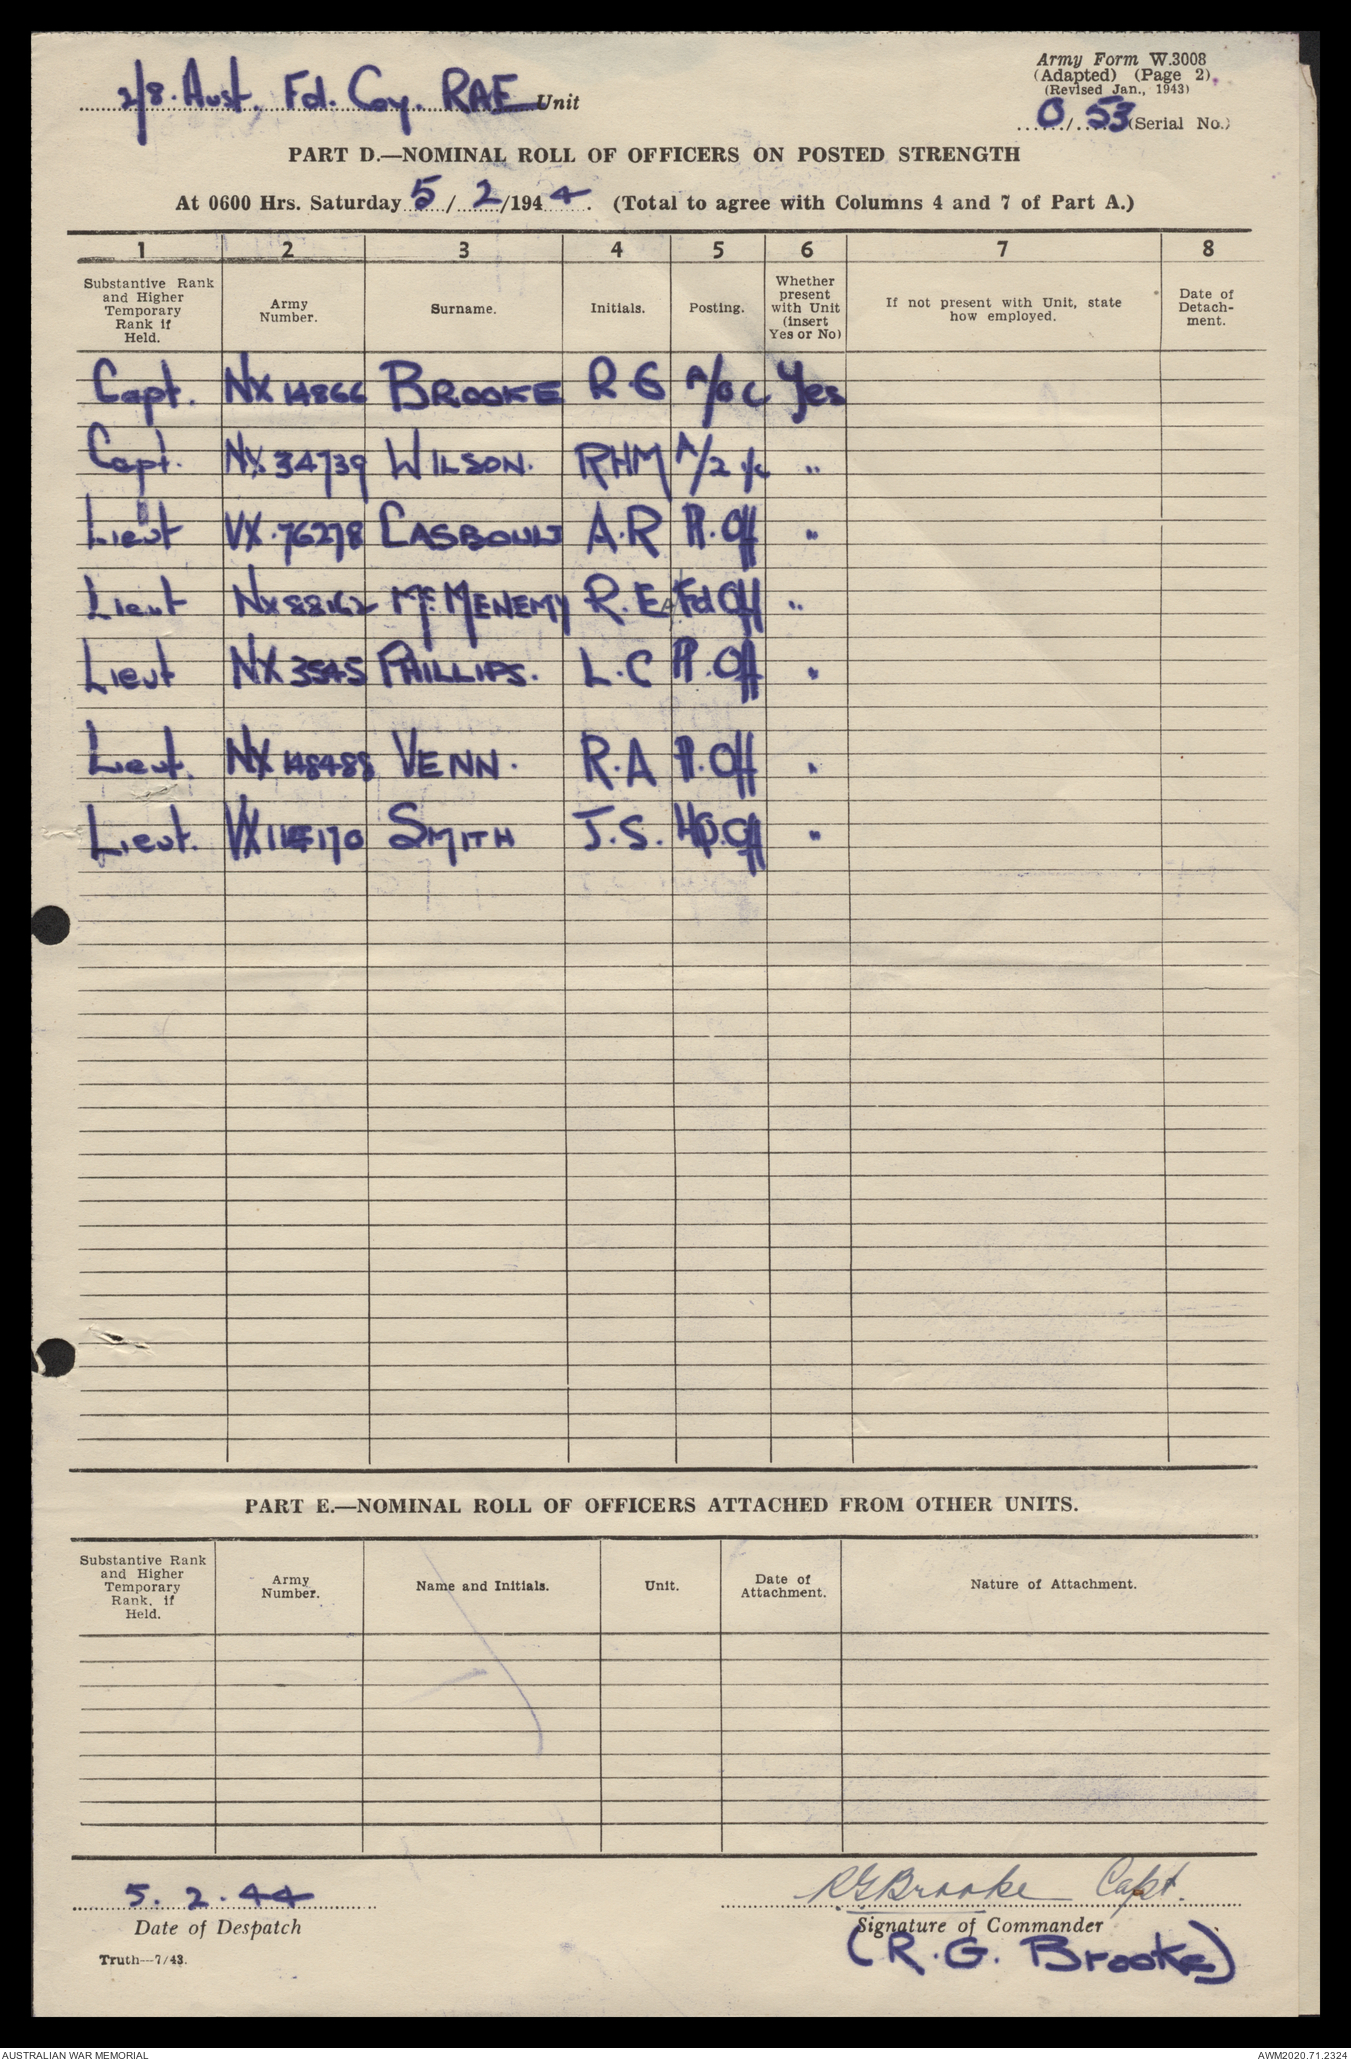 Army Form W.3008
(Adapted) (Page 2)
(Revised Jan., 1943)
2/8. Aust. Fd. Coy. RAE Unit
O / 53 (Serial No.)
PART D.—NOMINAL ROLL OF OFFICERS ON POSTED STRENGTH
At 0600 Hrs. Saturday 5 / 2 /194 4 . (Total to agree with Columns 4 and 7 of Part A.)
1 2 3 4 5 6 7 8
Substantive Rank and Higher Temporary Rank if Held.
Army Number.
Surname.
Initials.
Posting.
Whether present with Unit (insert Yes or No)
If not present with Unit, state how employed.
Date of Detach-ment.
Capt. NX 14866 BROOKE R.G A/OC Yes
Capt. NX 34739 WILSON. RHM A/2 i/c "
Lieut VX.76278 CASBOULT A.R Pl.Off "
Lieut NX 88162 McMENEMY R.E Fd Off "
Lieut NX 3545 PHILLIPS. L.C Pl.Off "
Lieut. NX 148488 VENN. R.A Pl.Off "
Lieut. VX114170 SMITH J.S. HQ.Off "
PART E.—NOMINAL ROLL OF OFFICERS ATTACHED FROM OTHER UNITS.
Substantive Rank and Higher Temporary Rank, if Held.
Army Number.
Name and Initials.
Unit.
Date of Attachment.
Nature of Attachment.
5. 2. 44
RGBrooke Capt.
Date of Despatch
Signature of Commander
(R.G. Brooke)
Truth—7/43.
AUSTRALIAN WAR MEMORIAL
AWM2020.71.2324